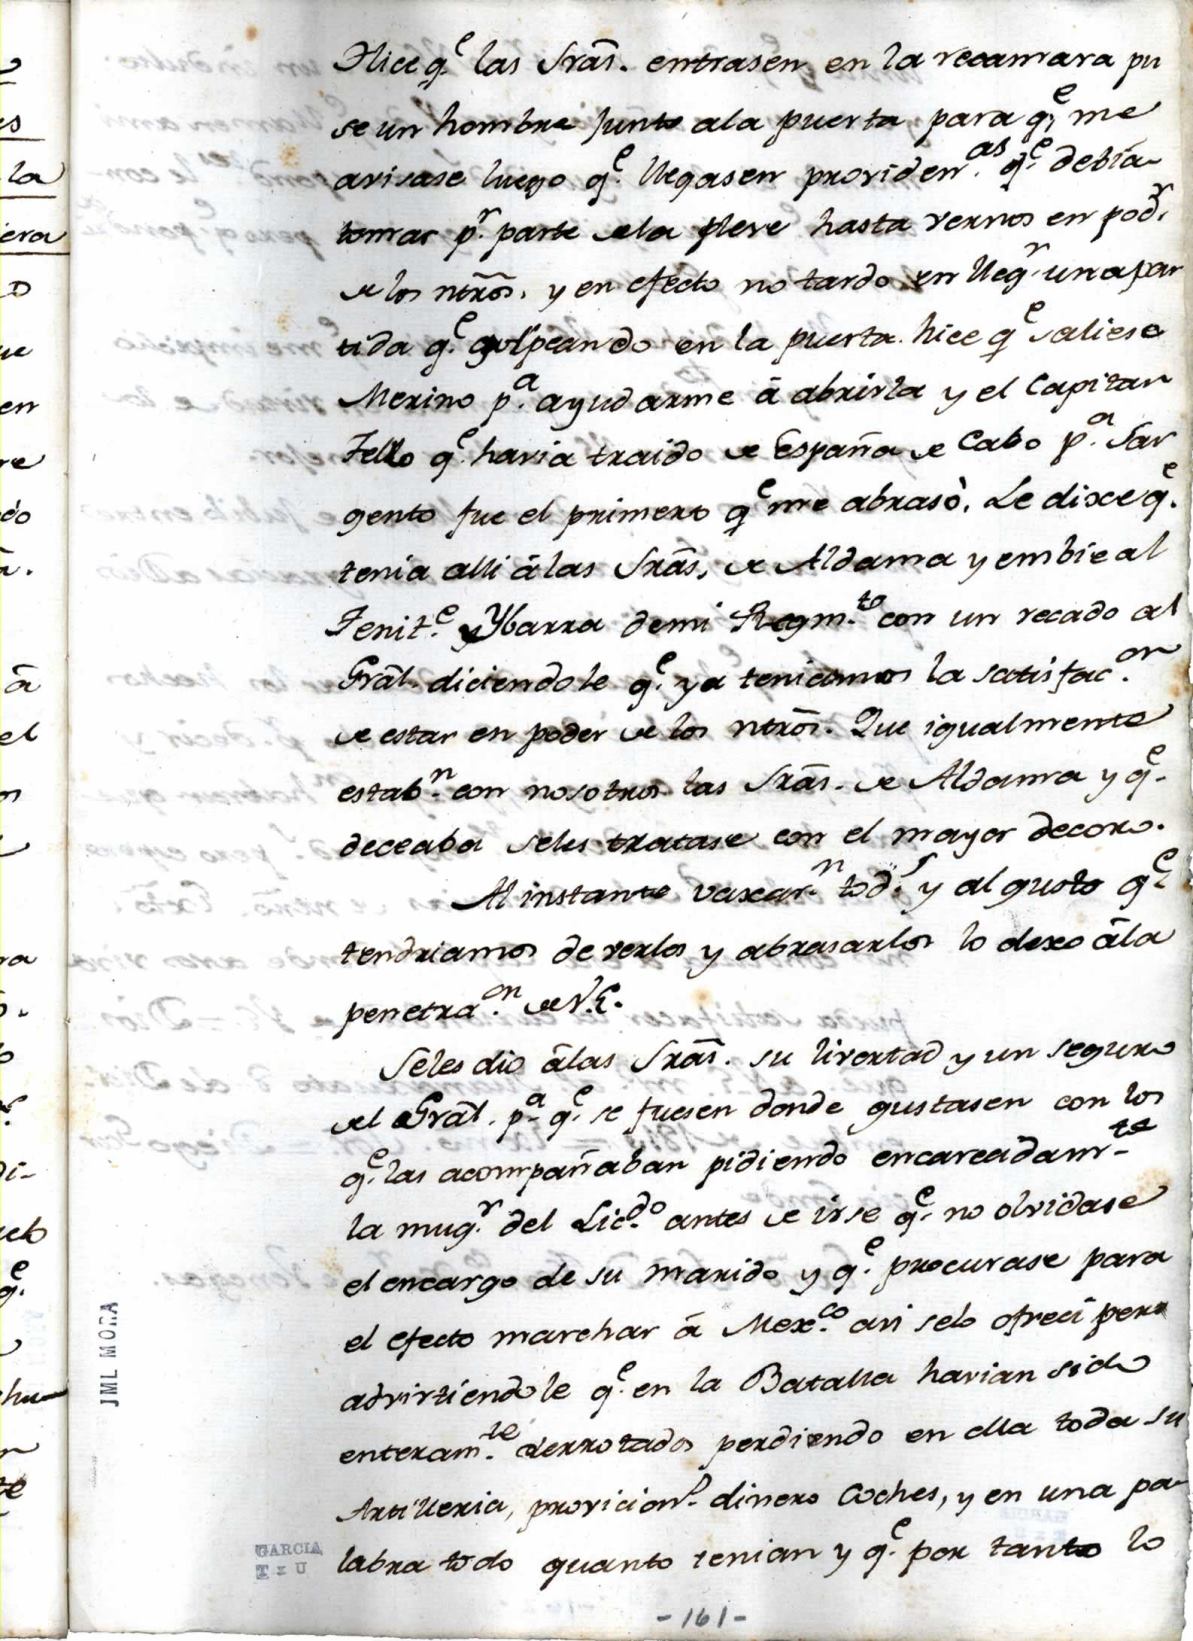 Hice q.e las Srās. entrasen en la recamara pu
se un hombre junto ala puerta para q.e me
avisase luego q.e llegasen providen.as q.e debia
tomar p.r parte de la pleve hasta vernos en pod.r
de los ntrōs. y en efecto no tardo en lleg.r una par
tida q.e golpeando en la puerta hice q.e saliese
Merino p.a ayudarme á abrirla y el Capitan
Tello q.e havia traido de España de Cabo p.a Sar
gento fue el primero q.e me abrasó. Le dixe q.e
tenia alli á las Srās. de Aldama y embie al
Tenit.e Ybarra de mi Regm.to con un recado al
Grāl. diciendole q.e ya teniamos la satisfac.on
de estar en poder de los ntrōs. Que igualmente
estab.n con nosotros las Srās. de Aldama y q.e
deceaba seles tratase con el mayor decoro.
Al instante vaxar.n tod.s y al gusto q.e
tendriamos de verlos y abrasarlos lo dexo á la
penetra.on de V.E.
Seles dio á las Srās. su livertad y un seguro
del Grāl. p.a q.e se fuesen donde gustasen con los
q.e las acompañaban pidiendo encarecidam.te
la mug.r del Lic.do antes de irse q.e no olvidase
el encargo de su marido y q.e procurase para
el efecto marchar á Mex.co asi selo ofreci pero
advirtiendole q.e en la Batalla havian sido
enteram.te derrotados perdiendo en ella toda su
Artilleria, provicion.s dinero Coches, y en una pa
labra todo quanto tenian y q.e por tanto lo
-161-
JML MORA
GARCIA
la
era
ue
en
re
do
á
el